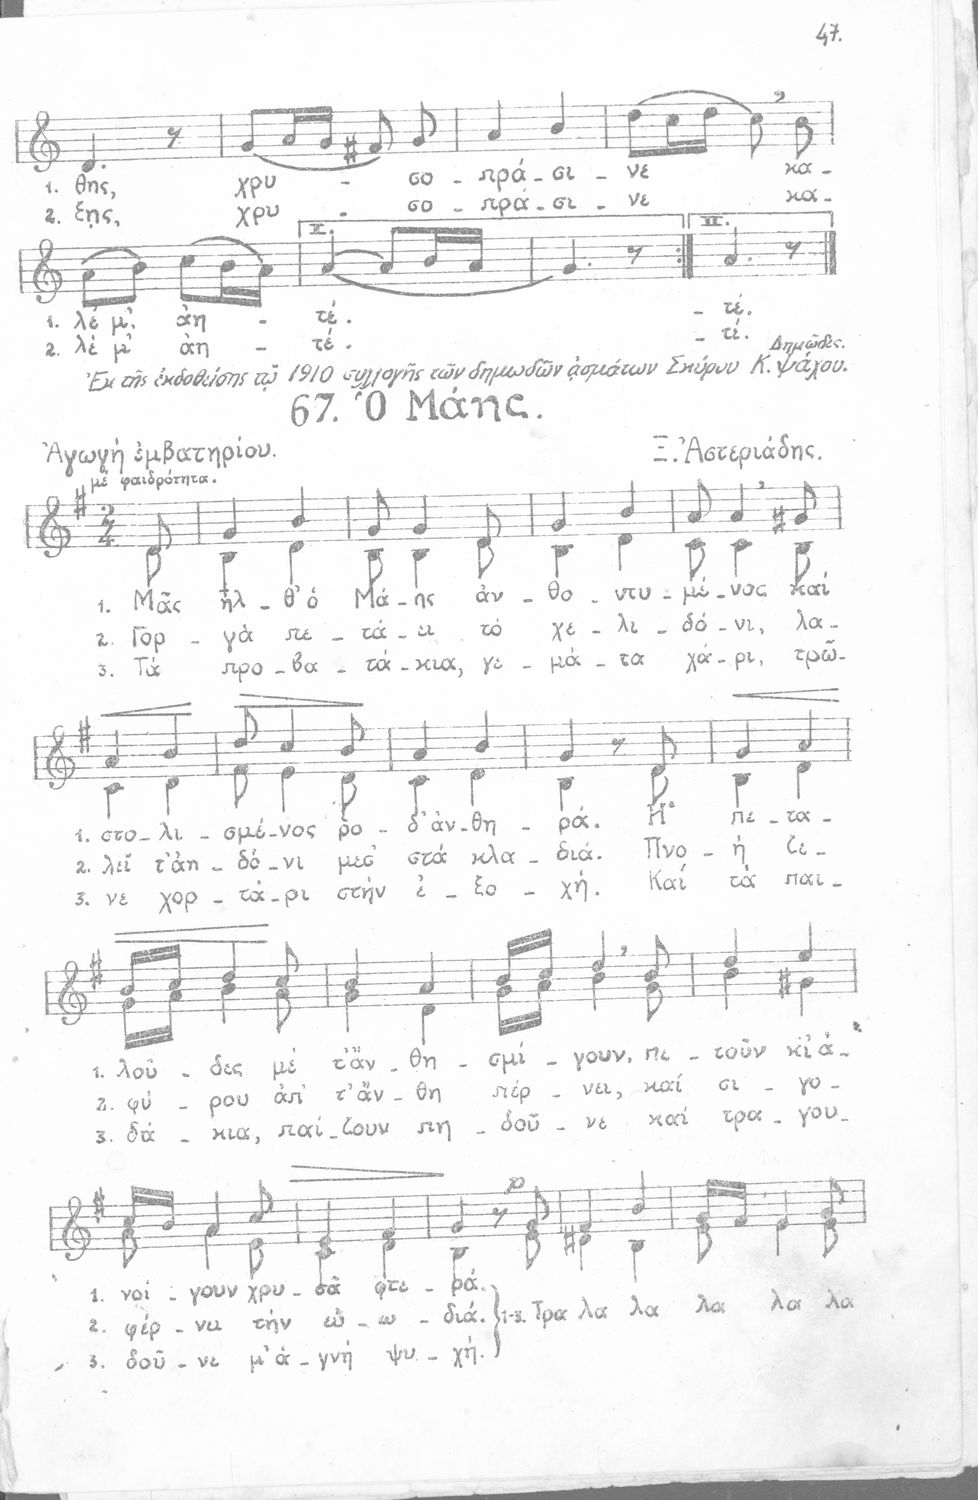 47.
1. θης, χρυ - σο - πρά - σι - νε κα -
2. ξῃς, χρυ - σο - πρά - σι - νε κα -
I. II.
1. λέ μ' ἀη - τέ. - τέ.
2. λέ μ' ἀη - τέ. - τέ.
Δημῶδες.
Ἐκ τῆς ἐκδοθείσης τῷ 1910 συλλογῆς τῶν δημωδῶν ᾀσμάτων Σκύρου Κ. Ψάχου.
67. Ὁ Μάης.
Ἀγωγή ἐμβατηρίου. Ξ. Ἀστεριάδης.
μέ φαιδρότητα.
2
4
1. Μᾶς ἦλ - θ' ὁ Μά - ης ἀν - θο - ντυ - μέ - νος καί
2. Γορ - γὰ πε - τά - ει τό χε - λι - δό - νι, λα -
3. Τά προ - βα - τά - κια, γε - μά - τα χά - ρι, τρῶ -
1. στο - λι - σμέ - νος ῥο - δ' ἀν - θη - ρά. Ἡ πε - τα -
2. λεῖ τ' ἀη - δό - νι μεσ' στά κλα - διά. Πνο - ή ζε -
3. νε χορ - τά - ρι στήν ἐ - ξο - χή. Καί τά παι -
1. λοῦ - δες μέ τ' ἄν - θη - σμί - γουν, πε - τοῦν κι' ἀ -
2. φύ - ρου ἀπ' τ' ἄν - θη πέρ - νει, καί σι - γο -
3. δά - κια, παί - ζουν πη - δοῦ - νε καί τρα - γου -
p
1. νοί - γουν χρυ - σᾶ φτε - ρά.
2. φέρ - νει τήν εὐ - ω - διά. 1-3. Τρα λα λα λα λα λα
3. δοῦ - νε μ' ἁ - γνή ψυ - χή.